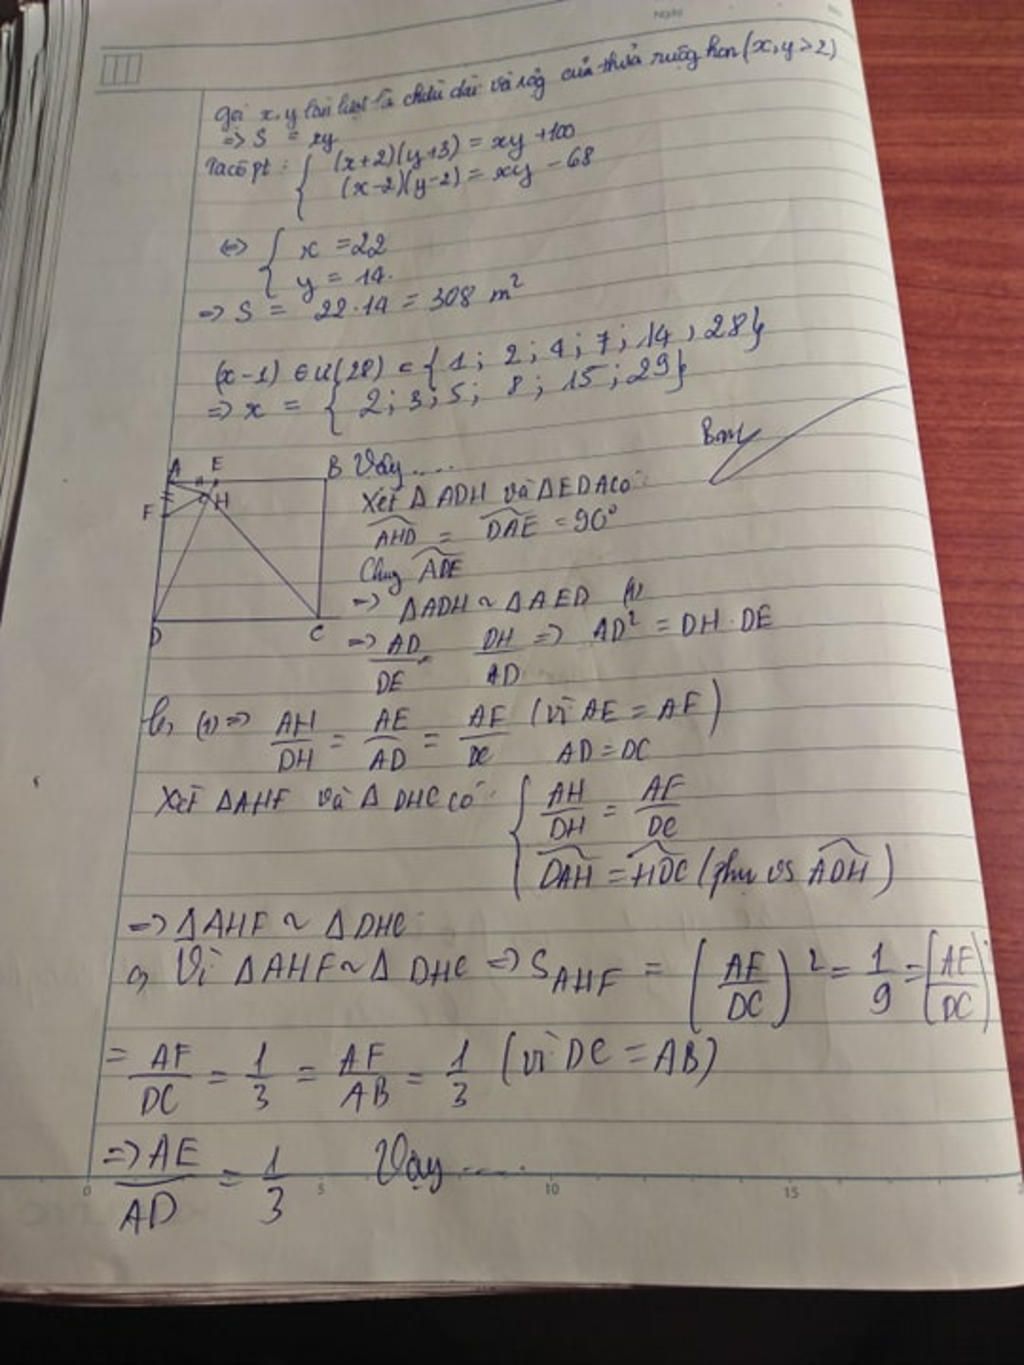 Ngày
No.
Gọi x, y lần lượt là chiều dài và rộng của thửa ruộng hcn (x, y > 2)
=> S = xy
Ta có pt : { (x+2)(y+3) = xy + 100
(x-2)(y-2) = xy - 68
<=> { x = 22
y = 14.
=> S = 22.14 = 308 m²
(x-1) ∈ Ư(28) = {1; 2; 4; 7; 14; 28}
=> x = {2; 3; 5; 8; 15; 29}
A E B Vậy....
F H
D C
Xét Δ ADH và Δ EDA có :
AHD = DAE = 90°
Chung ADE
=> Δ ADH ~ Δ AED (1)
=> AD/DE = DH/AD => AD² = DH . DE
b, (1) => AH/DH = AE/AD = AF/DC (vì AE = AF)
AD = DC
Xét Δ AHF và Δ DHC có : { AH/DH = AF/DC
DAH = HDC (phụ vs ADH)
=> Δ AHF ~ Δ DHC
c, Vì Δ AHF ~ Δ DHC => S AHF = (AF/DC)² = 1/9 = (AF/DC)
= AF/DC = 1/3 = AF/AB = 1/3 (vì DC = AB)
=> AE/AD = 1/3 Vậy .....
0 5 10 15